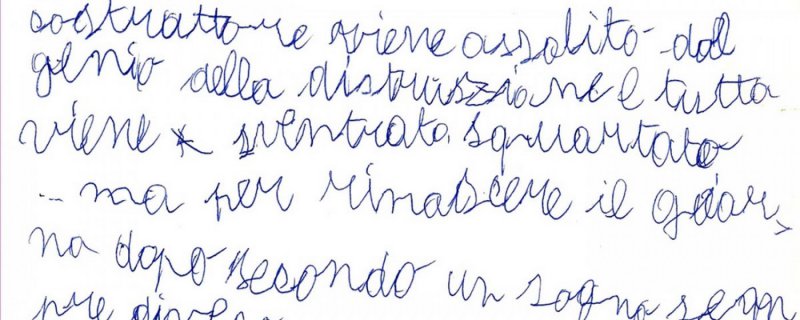 costruttore viene assalito dal
genio della distruszione e tutta
viene sventrata squartata
.. ma per rinascere il gior
no dopo secondo un sogno sem
pre